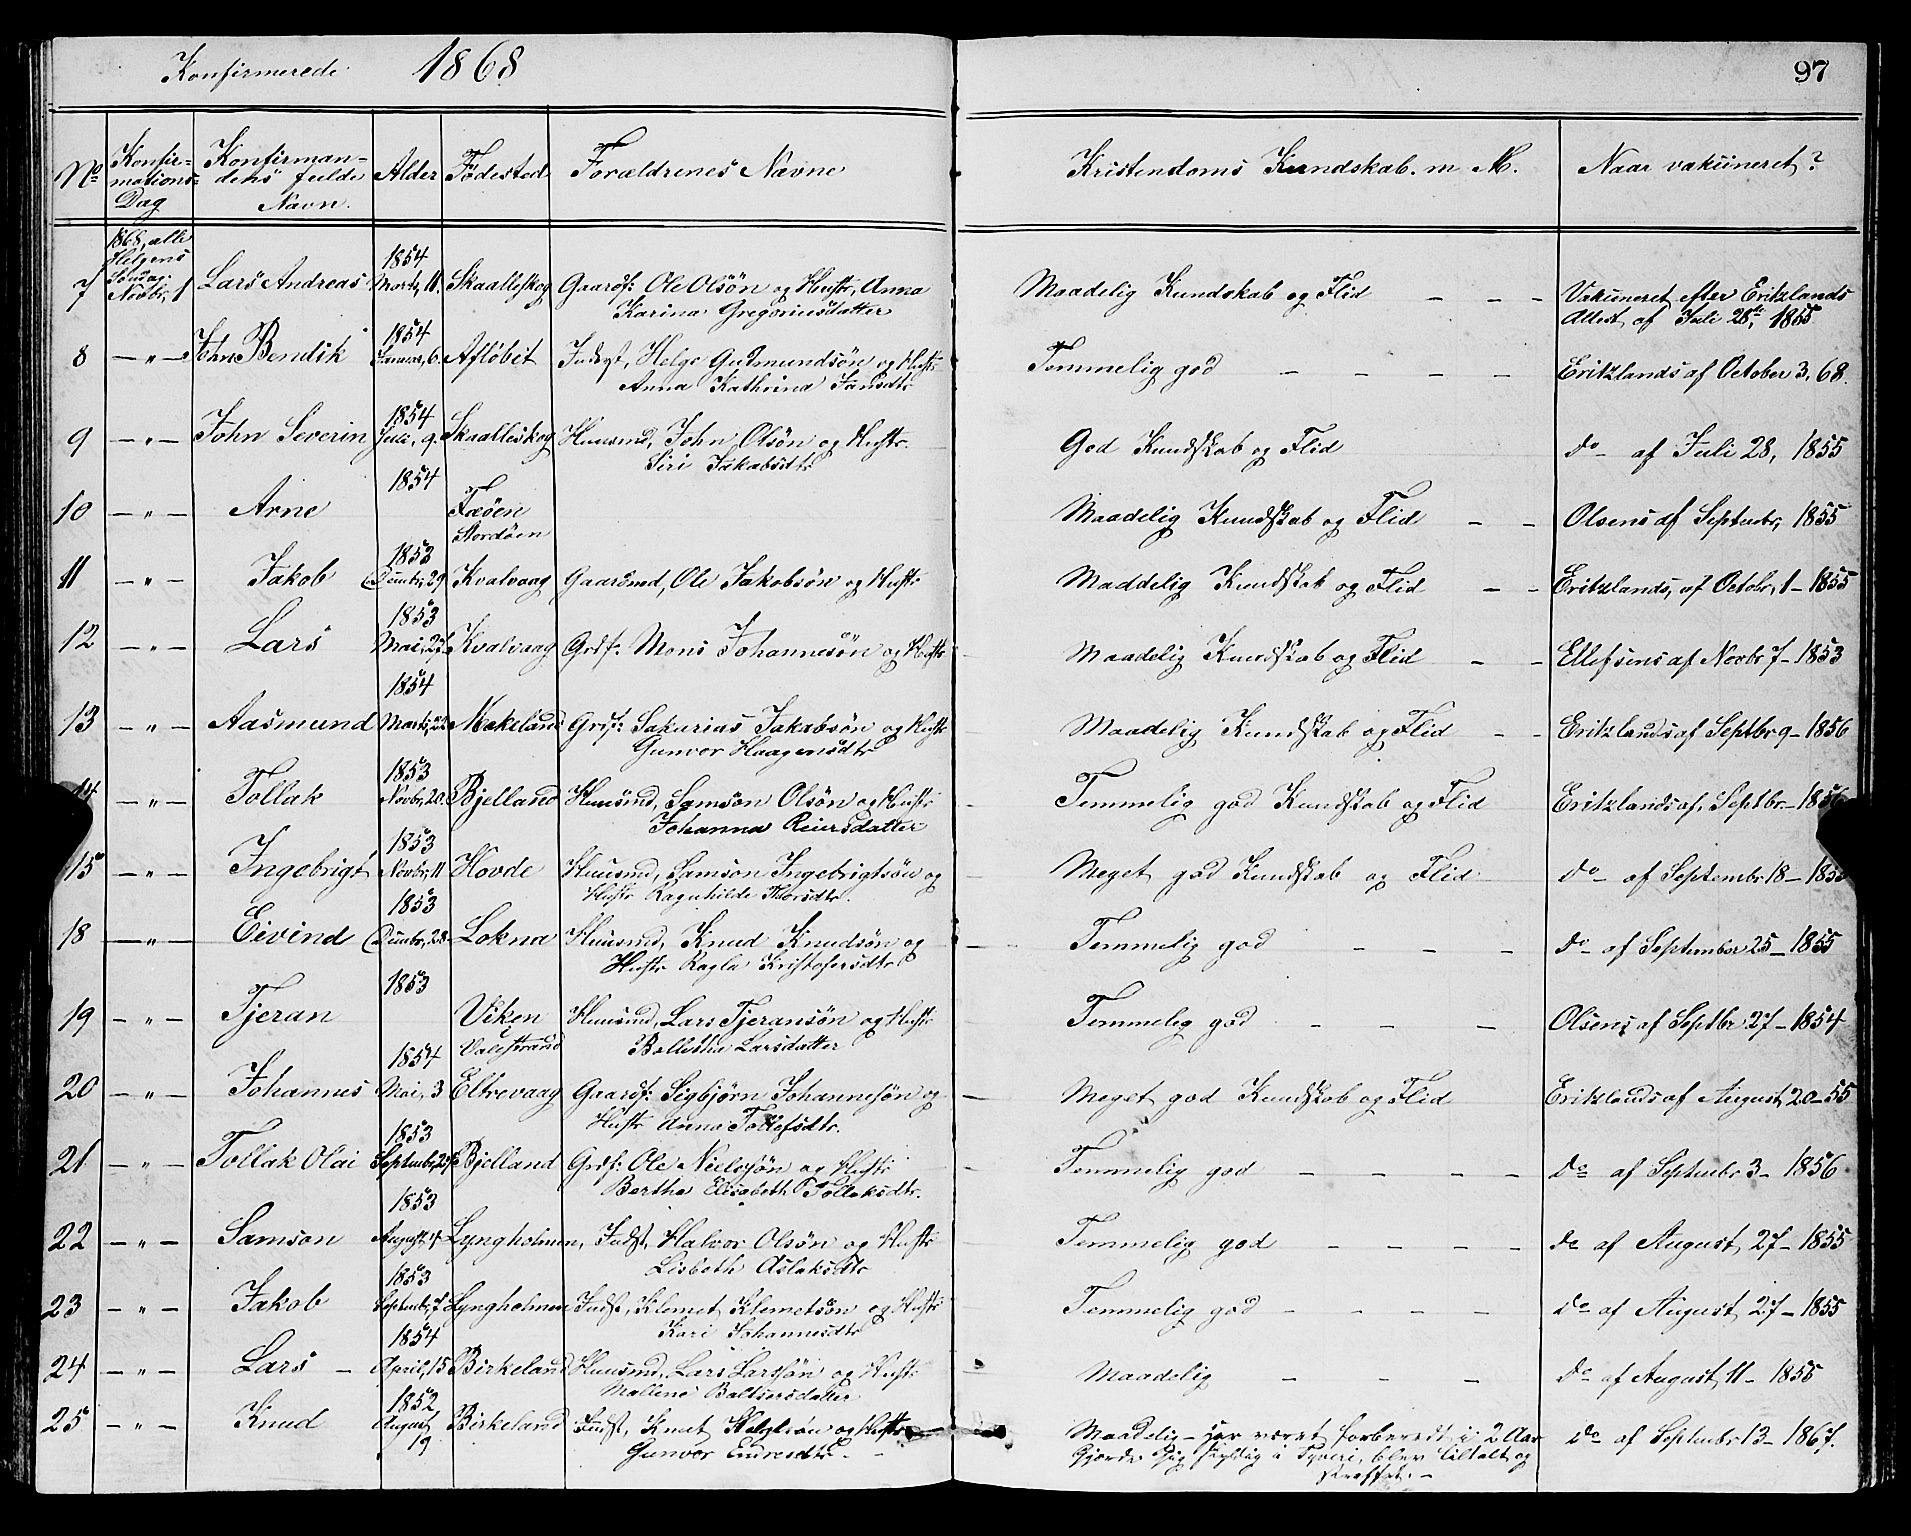 Konfirmerede 1868
97
No Konfir-mations-Dag Konfirman-dens fulde Navn. Alder Fødested Forældrenes Navne Kristendoms Kundskab. m M. Naar vakuineret?
7 1868, alle Helgens Søndag, Novbr, 1 Lars Andreas 1854 Marts, 11. Skaalleskog Gaardf: Ole Olsøn og Hustr, Anna Maadelig Kundskab og Flid – – – Vakuineret efter Eritzlands
Karina Gregoriusdatter Attest af Juli 28de, 1855
8 – " – John Bendik 1854 Januar, 6. Afløbet Inderst, Helge Gudmundsøn og Hustr Temmelig god – – – – Eritzlands af October 3, 68.
Anna Kathrina Jansdtr
9 – " – John Severin 1854 Juli, 9. Skaalleskog Huusmd, John Olsøn og Hustr. God Kundskab og Flid do – af Juli 28, 1855
Siri Jakobsdtr
10 – " – Arne 1854 Fæøen Maadelig Kundskab og Flid – – Olsens af Septmbr, 1855
Stordøen
11 – " – Jakob 1853 Decmbr, 29 Kvalvaag Gaarsmd, Ole Jakobsøn og Hustr Maddelig Kundskab og Flid – – Eritzlands, af Octobr, 1 – 1855
12 – " – Lars 1853 Mai, 27. Kvalvaag Grdf: Mons Johannesøn og Hustr Maadelig Kundskab og Flid – – Ellefsens af Novbr 7 – 1853
13 – " – Aasmund 1854 Marts, 22 Mækeland Grdf: Sakarias Jakobsøn og Hustr Maadelig Kundskab og Flid – – Eritzlands af Septbr 9 – 1856
Gunvor Haagensdtr
14 – " – Tollak 1853 Novbr, 20. Bjelland Huusmd, Samson Olsøn og Hustr Temmelig god Kundskab og Flid Eritzlands af, Septbr – 1856
Johanna Reiersdatter
15 – " – Ingebrigt 1853 Novbr, 11 Hovde Huusmd, Samson Ingebrigtsøn og Meget god Kundskab og Flid do – af Septembr 18 – 185
Hustr Ragnhilde Thorsdtr.
18 – " – Eivind 1853 Decmbr, 28. Lokna Huusmd, Knud Knudsøn og Temmelig god – – – do af September 25 – 1855
Hustr Ragla Kristofersdtr
19 – " – Tjeran 1853 Viken Huusmd, Lars Tjeransøn og Hustr Temmelig god – – – Olsens af Septbr 27 – 1854
i Valestrand Larsdatter
20 – " – Johannes 1854 Mai, 3 Eltrevaag Gaardf: Sigbjørn Johannesøn og Meget god Kundskab og Flid Eritzlands af August 20 – 55
Hustr Anna Tollefsdtr.
21 – " – Tollak Olai 1853 Septembr, 27 Bjelland Grdf: Ole Nielssøn og Hustr Temmelig god – – – – do af Septmbr 3 – 1856
Bertha Elisabeth Tollaksdtr.
22 – " – Samson 1853 August, 4 Lyngholmen, Indst, Halvor Olsøn og Hustr Temmelig god – – – – do af August 27 – 1855
Lisbeth Aslaksdtr
23 – " – Jakob 1853 Septmbr, 7. Lyngholmen Indst, Klemet Klemetsøn og Hustr Temmelig god – – – – do af August 27 – 1855
Kari Johannesdtr
24 – " – Lars – 1854 April, 15 Birkeland Huusmd, Lars Larssøn og Hustr Maadelig – – – do af August 11 – 1855
Malene Baltsersdatter
25 – " – Knud 1852 August 19 Birkeland Indst, Knut Helgesøn og Hustr Maadelig – Har været forberedt i 2 Aar do af Septmbr 13 – 1867.
Gunvor Endresdtr – Gjorde sig skyldig i Tyveri, blev tiltalt og
straffet. –